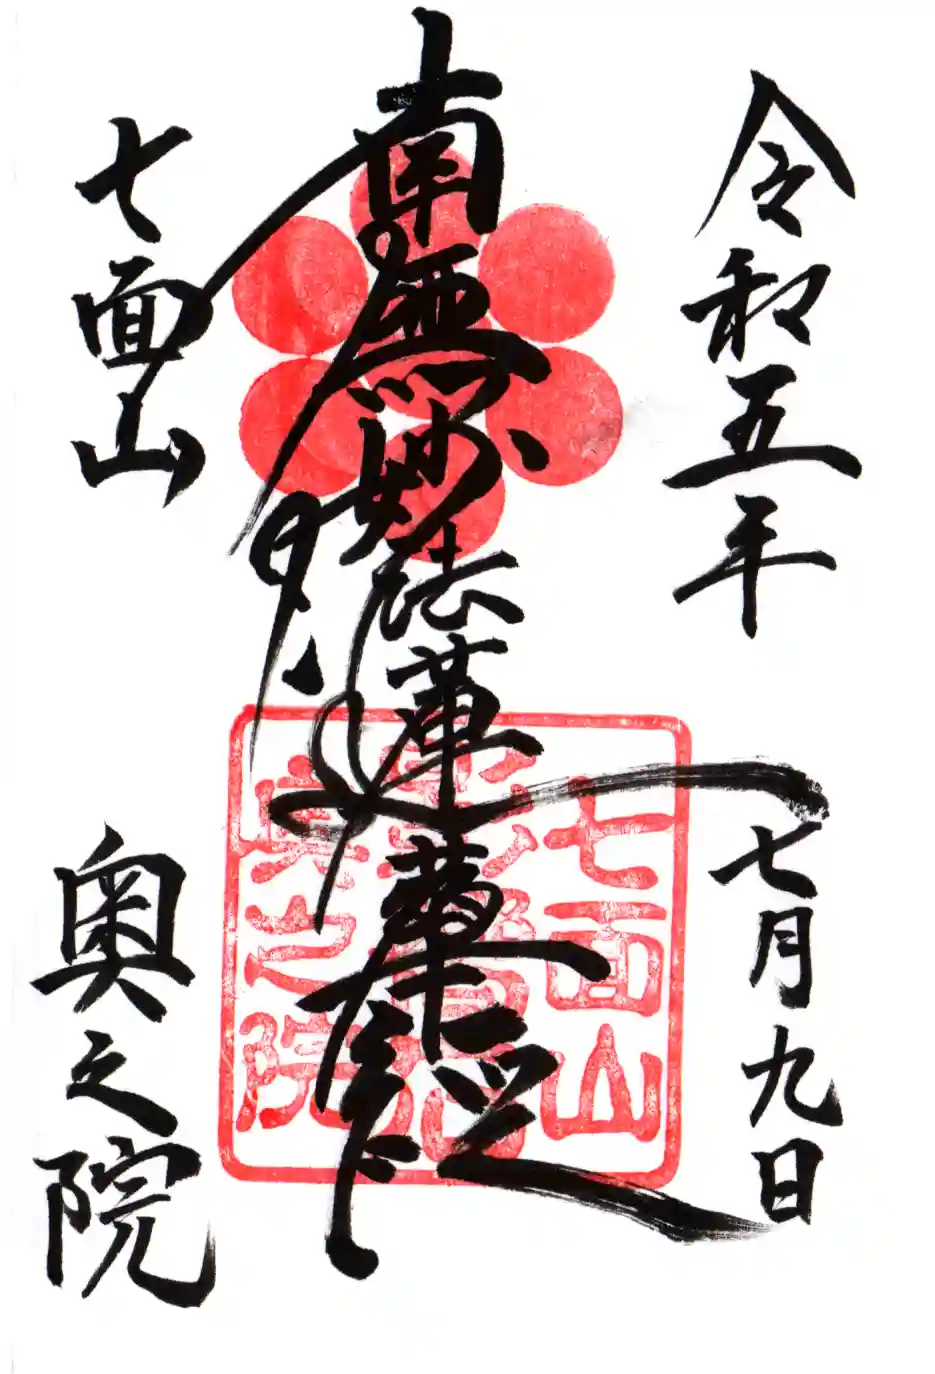 令和五年
七月九日
南無妙法蓮華経
七面山
奥之院
七面山
奥之院